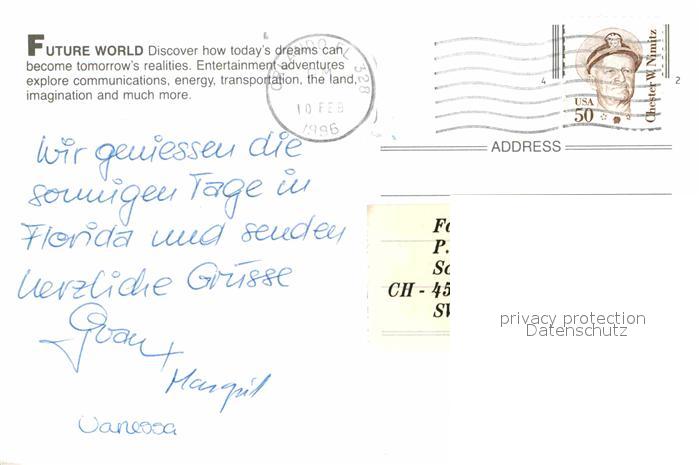 FUTURE WORLD Discover how today's dreams can
become tomorrow's realities. Entertainment adventures
explore communications, energy, transportation, the land,
imagination and much more.
ORLANDO FL 328
10 FEB
1996
4
2
USA
50
Chester W. Nimitz
ADDRESS
Wir geniessen die
sonnigen Tage in
Florida und senden
herzliche Grüsse
Margrit
Vanessa
P.
CH - 45
privacy protection
Datenschutz